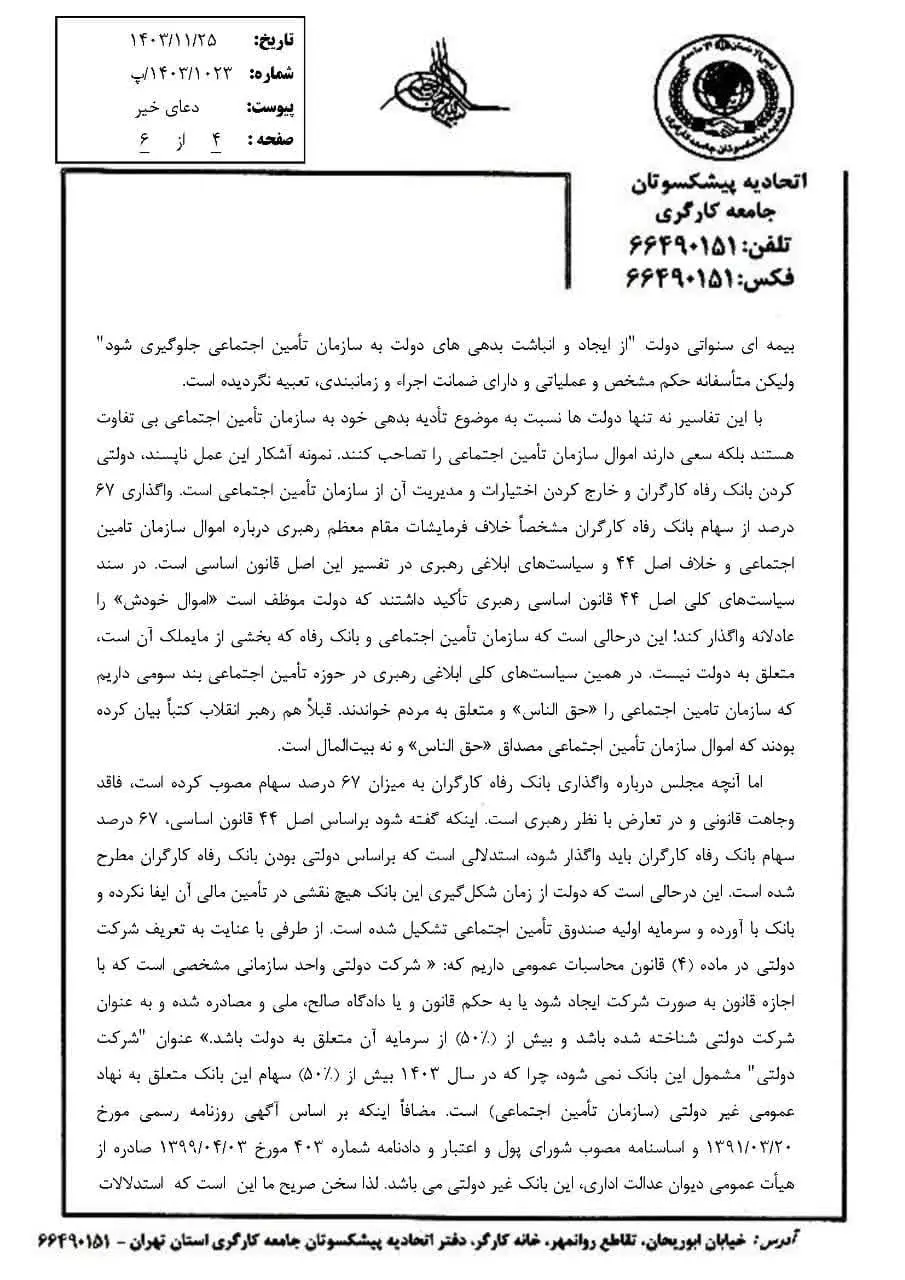 تاریخ: ۱۴۰۳/۱۱/۲۵
شماره: ۱۴۰۳/۱۰۲۳/پ
پیوست: دعای خیر
صفحه: ۴ از ۶
اتحادیه پیشکسوتان جامعه کارگری
اتحادیه پیشکسوتان
جامعه کارگری
تلفن: ۶۶۴۹۰۱۵۱
فکس: ۶۶۴۹۰۱۵۱
بیمه ای سنواتی دولت "از ایجاد و انباشت بدهی های دولت به سازمان تأمین اجتماعی جلوگیری شود"
ولیکن متأسفانه حکم مشخص و عملیاتی و دارای ضمانت اجراء و زمانبندی، تعبیه نگردیده است.
با این تفاسیر نه تنها دولت ها نسبت به موضوع تأدیه بدهی خود به سازمان تأمین اجتماعی بی تفاوت
هستند بلکه سعی دارند اموال سازمان تأمین اجتماعی را تصاحب کنند. نمونه آشکار این عمل ناپسند، دولتی
کردن بانک رفاه کارگران و خارج کردن اختیارات و مدیریت آن از سازمان تأمین اجتماعی است. واگذاری ۶۷
درصد از سهام بانک رفاه کارگران مشخصاً خلاف فرمایشات مقام معظم رهبری درباره اموال سازمان تامین
اجتماعی و خلاف اصل ۴۴ و سیاست‌های ابلاغی رهبری در تفسیر این اصل قانون اساسی است. در سند
سیاست‌های کلی اصل ۴۴ قانون اساسی رهبری تأکید داشتند که دولت موظف است «اموال خودش» را
عادلانه واگذار کند! این درحالی است که سازمان تأمین اجتماعی و بانک رفاه که بخشی از مایملک آن است،
متعلق به دولت نیست. در همین سیاست‌های کلی ابلاغی رهبری در حوزه تأمین اجتماعی بند سومی داریم
که سازمان تامین اجتماعی را «حق الناس» و متعلق به مردم خواندند. قبلاً هم رهبر انقلاب کتباً بیان کرده
بودند که اموال سازمان تأمین اجتماعی مصداق «حق الناس» و نه بیت‌المال است.
اما آنچه مجلس درباره واگذاری بانک رفاه کارگران به میزان ۶۷ درصد سهام مصوب کرده است، فاقد
وجاهت قانونی و در تعارض با نظر رهبری است. اینکه گفته شود براساس اصل ۴۴ قانون اساسی، ۶۷ درصد
سهام بانک رفاه کارگران باید واگذار شود، استدلالی است که براساس دولتی بودن بانک رفاه کارگران مطرح
شده است. این درحالی است که دولت از زمان شکل‌گیری این بانک هیچ نقشی در تأمین مالی آن ایفا نکرده و
بانک با آورده و سرمایه اولیه صندوق تأمین اجتماعی تشکیل شده است. از طرفی با عنایت به تعریف شرکت
دولتی در ماده (۴) قانون محاسبات عمومی داریم که: « شرکت دولتی واحد سازمانی مشخصی است که با
اجازه قانون به صورت شرکت ایجاد شود یا به حکم قانون و یا دادگاه صالح، ملی و مصادره شده و به عنوان
شرکت دولتی شناخته شده باشد و بیش از (۵۰٪) از سرمایه آن متعلق به دولت باشد.» عنوان "شرکت
دولتی" مشمول این بانک نمی شود، چرا که در سال ۱۴۰۳ بیش از (۵۰٪) سهام این بانک متعلق به نهاد
عمومی غیر دولتی (سازمان تأمین اجتماعی) است. مضافاً اینکه بر اساس آگهی روزنامه رسمی مورخ
۱۳۹۱/۰۳/۲۰ و اساسنامه مصوب شورای پول و اعتبار و دادنامه شماره ۴۰۳ مورخ ۱۳۹۹/۰۴/۰۳ صادره از
هیأت عمومی دیوان عدالت اداری، این بانک غیر دولتی می باشد. لذا سخن صریح ما این است که استدلالات
آدرس: خیابان ابوریحان، تقاطع روانمهر، خانه کارگر، دفتر اتحادیه پیشکسوتان جامعه کارگری استان تهران - ۶۶۴۹۰۱۵۱